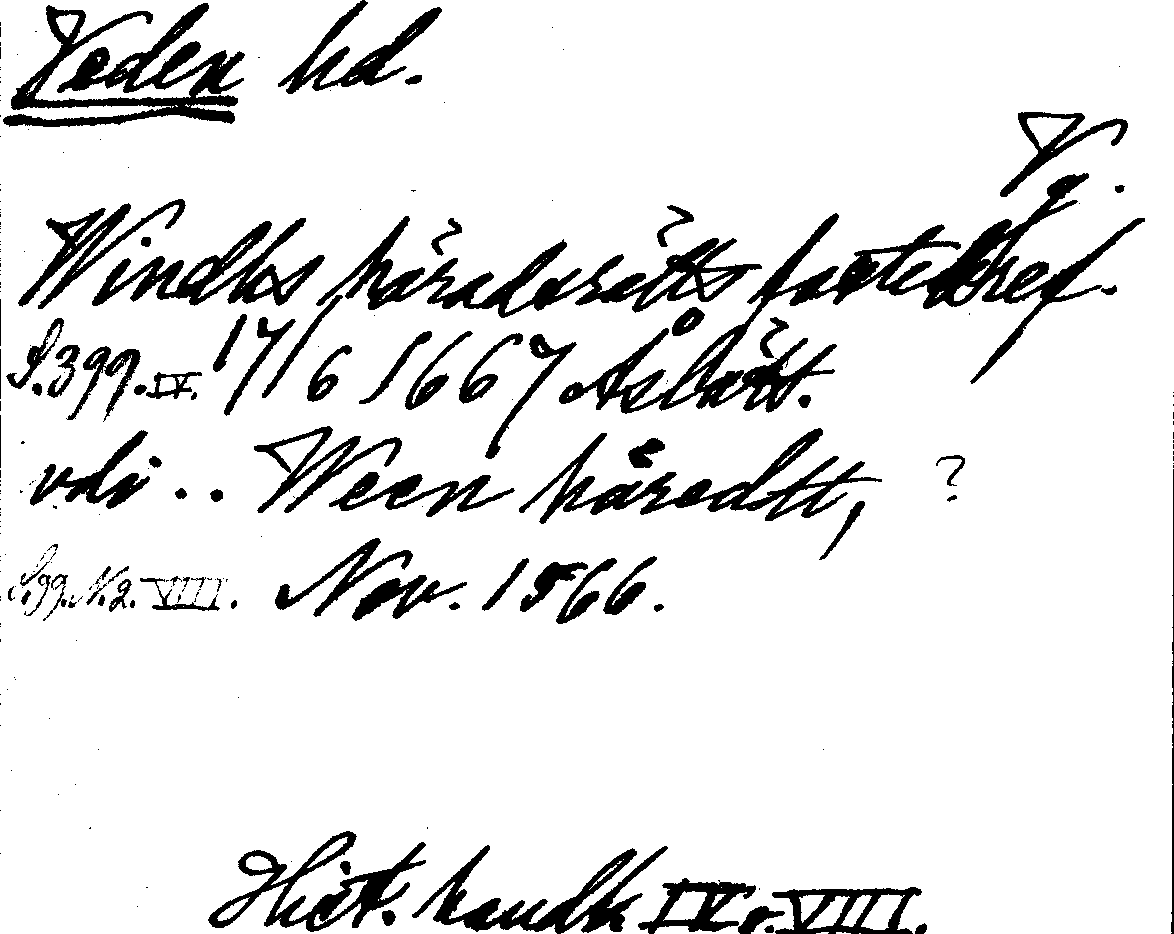 Veden hd.
Vg.
Windhs häradsrätts fastebref.
S. 399. IV. 17/6 1667 Åslätt.
vdi .. Ween häredtt, ?
S. 99. N. 2. VIII. Nov. 1566.
Hist. handl. IV o. VIII.